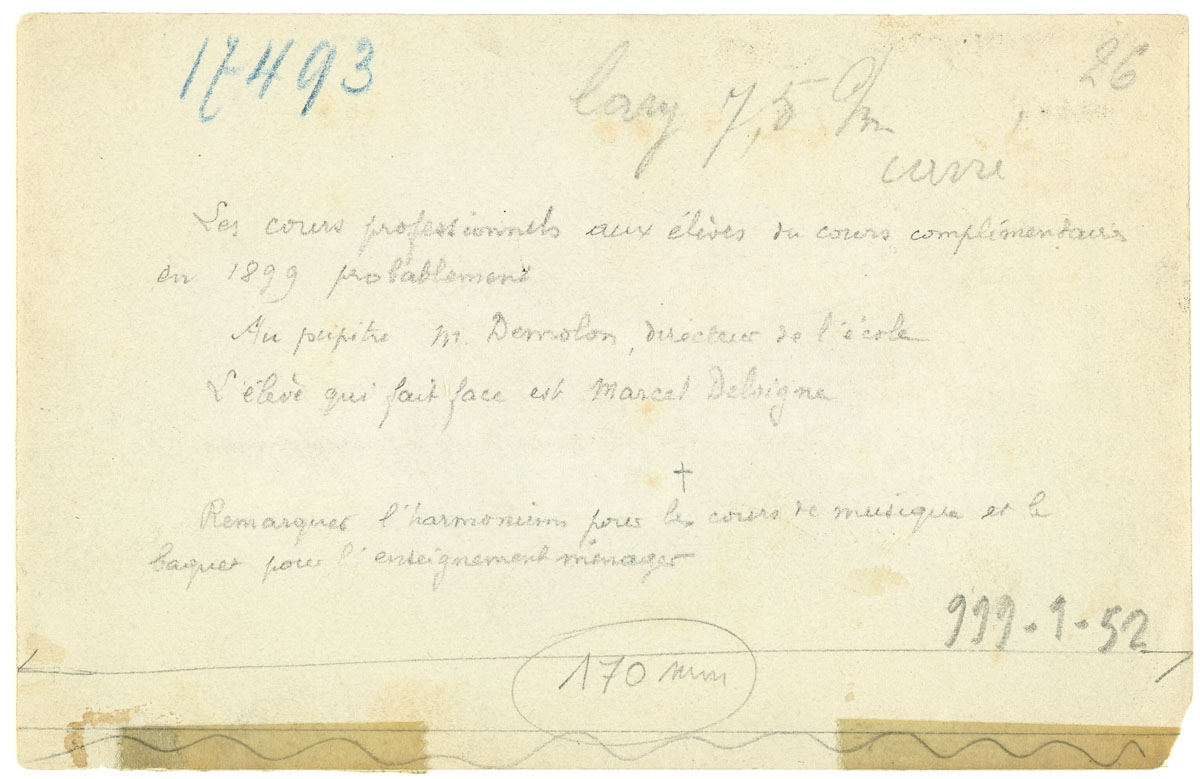 17493
26
larg 7,5 c/m
carré
Les cours professionnels aux élèves du cours complémentaire
en 1899 probablement
Au pupitre M. Demolon, directeur de l'école
L'élève qui fait face est Marcel Deloigne
†
Remarquer l'harmonium pour les cours de musique et le
baquet pour l'enseignement ménager
999-1-52
170 mm